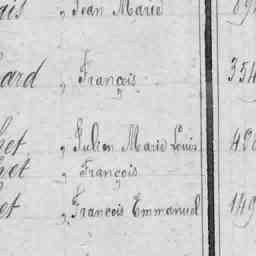 ais, Jean Marie 89
ard, François 354
het, Julien Marie Louis 420
het, François
het, François Emmanuel 149